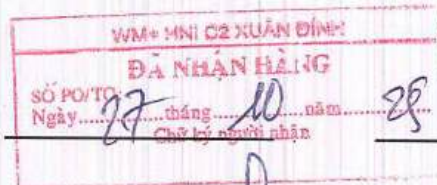 WM+ HNI C2 XUÂN ĐỈNH
ĐÃ NHẬN HÀNG
SỐ PO/TO:
Ngày 27 tháng 10 năm 25
Chữ ký người nhận